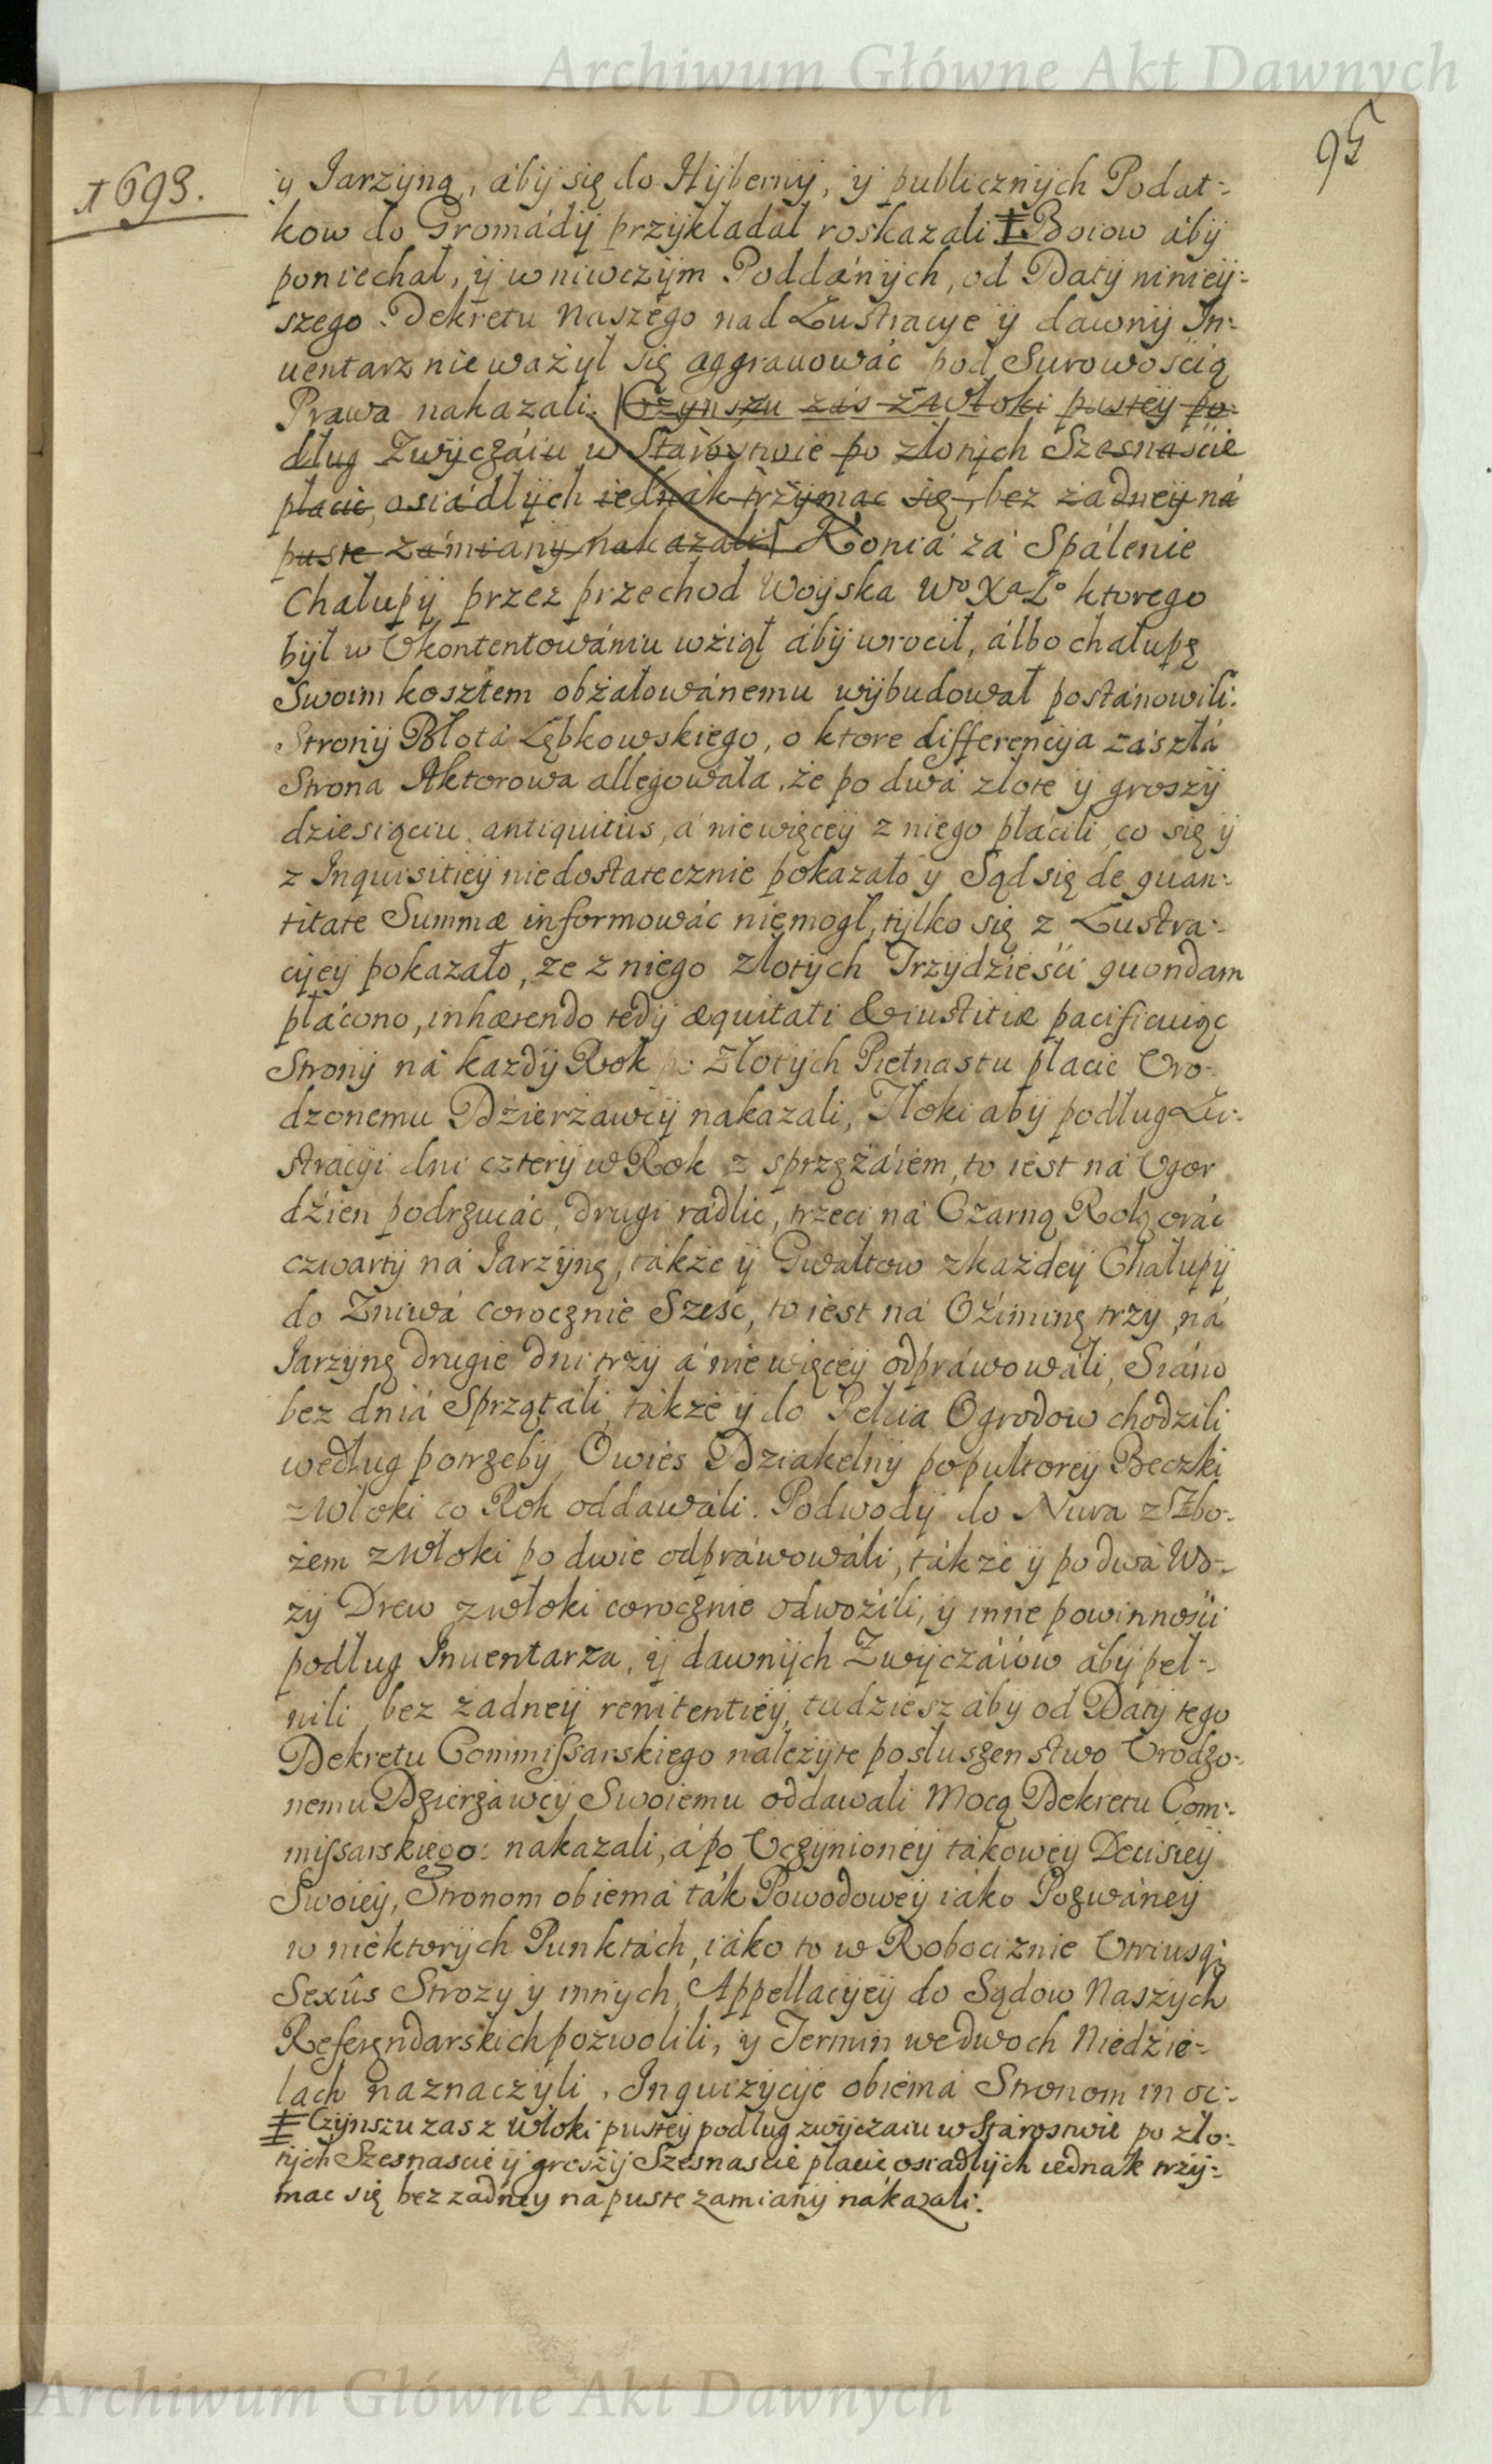 Archiwum Główne Akt Dawnych
95
1693.
y Jarzÿną, ábÿ się do Hÿbernÿ, ÿ publicznÿch Podat-
kow do Gromádÿ przÿkładał roskazali ‡ Boiow ábÿ
poniechał, ÿ w niwczÿm Poddánÿch, od Datÿ ninieÿ-
szego Dekretu Naszego nad Lustracye ÿ dawnÿ In-
uentarz nie ważÿł się aggrauowáć pod Surowością
Prawa nakazali. Czÿnszu zás z Włoki pustey po-
dług Zwÿczáiu w Starostwie po złotÿch Szesnaście
płacić, osiádłÿch iednák trzÿmac się, bez żadneÿ ná
puste zámianÿ nakazali Koniá zá Spálenie
Chałupÿ przez przechod Woÿska Wo Xa Lo ktorego
bÿł w Ukontentowániu wźiął ábÿ wrocił, álbo chałupę
Swoim kosztem obżałowánemu wÿbudował postánowili.
Stronÿ Błotá Łębkowskiego, o ktore differencÿa zászłá
Strona Aktorowa allegowała, że po dwá złote ÿ groszÿ
dziesiąciu antiquitùs, á niewięceÿ z niego płácili, co się ÿ
z Inquisitieÿ niedostatecznie pokazało ÿ Sąd się de quan-
titate Summæ informowáć niemogł, tÿlko się z Lustra-
cÿeÿ pokazało, że z niego złotÿch Trzÿdzieści quondam
płácono, inhærendo tedÿ æquitati & iustitiæ pacificuiąc
Stronÿ ná każdÿ Rok po Złotÿch Piętnastu płacić Uro-
dzonemu Dźierżawcÿ nakazali, Tłoki abÿ podług Lu-
stracÿi dni czterÿ w Rok z sprzężáiem, to iest ná Ugor
dźien podrzucáć, drugi rádlić, trzeci ná Czarną Rolą oráć
czwartÿ ná Jarzÿnę, tákże ÿ Gwałtow z każdeÿ Chałupÿ
do Żniwá corocznie Sześć, to iest ná Oźiminę trzÿ, ná
Jarzÿnę drugie dni trzÿ á nie więceÿ odpráwowáli, Siáno
bez dniá Sprzątáli, tákże ÿ do Pełcia Ogrodow chodzili
według potrzebÿ, Owies Dziakelnÿ popułtoreÿ Beczki
z Włoki co Rok oddawáli. Podwodÿ do Nura z Zbo-
żem z Włoki po dwie odpráwowáli, tákże ÿ po dwá Wo-
zÿ Drew z włoki corocznie odwoźili, ÿ inne powinności
podług Inuentarza, ÿ dawnÿch Zwÿczáiow ábÿ peł-
nili bez żadneÿ renitentieÿ, tudziesz ábÿ od Datÿ tego
Dekretu Commissarskiego należÿte posłuszenstwo Urodzo-
nemu Dzierzáwcÿ Swoiemu oddawali Mocą Dekretu Com-
missarskiego: nakazali, á po Uczÿnioneÿ tákoweÿ Decisieÿ
Swoieÿ, Stronom obiemá ták Powodoweÿ iáko Pozwáneÿ
w niektorÿch Punktách, iáko to w Robociznie Utriusq;
Sexûs Strozÿ ÿ innÿch, Appellacÿeÿ do Sądow Naszÿch
Referendarskich pozwolili, ÿ Termin we dwoch Niedzie-
lach naznaczÿli, Inquizÿcÿe obiemá Stronom in oc-
‡ Czÿnszu zas z Włoki pusteÿ podług zwÿczaiu w Starostwie po zło-
tÿch Szesnascie ÿ groszÿ Szesnascie płacić, osiadłÿch iednak trzÿ-
mac się bez żadneÿ na puste zamianÿ nakazali.
Archiwum Główne Akt Dawnych